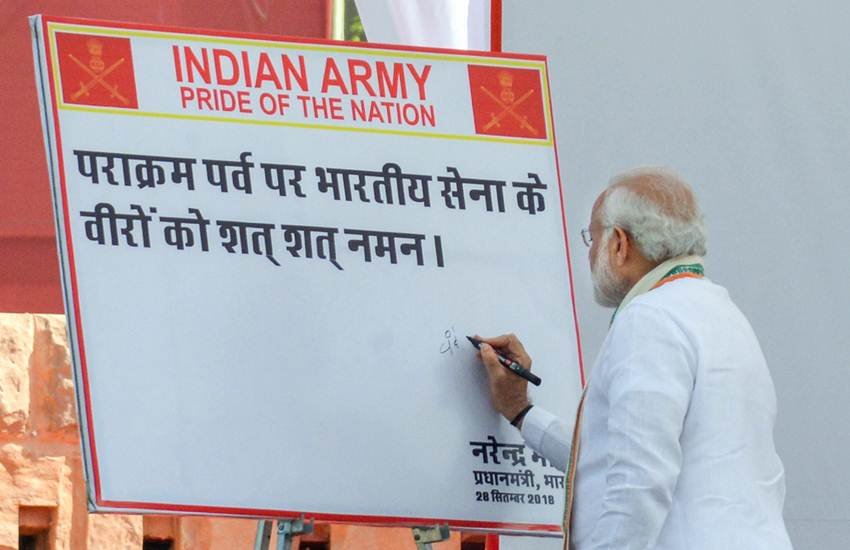 INDIAN ARMY
PRIDE OF THE NATION
पराक्रम पर्व पर भारतीय सेना के
वीरों को शत् शत् नमन।
नरेन्द्र
प्रधानमंत्री,
28 सितम्बर 2018